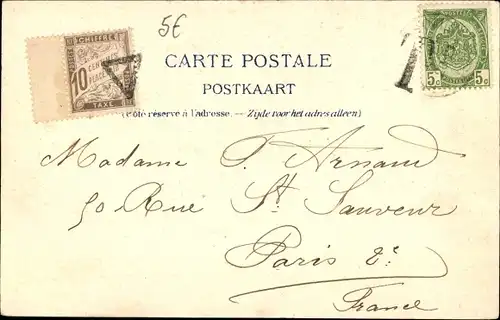 5€
CHIFFRE
10 CENTIMES
TAXE
T
5c 5c
CARTE POSTALE
POSTKAART
(Côté réservé à l'adresse. — Zijde voor het adres alleen)
Madame F. Arnaud
50 Rue St Sauveur
Paris 2e
France